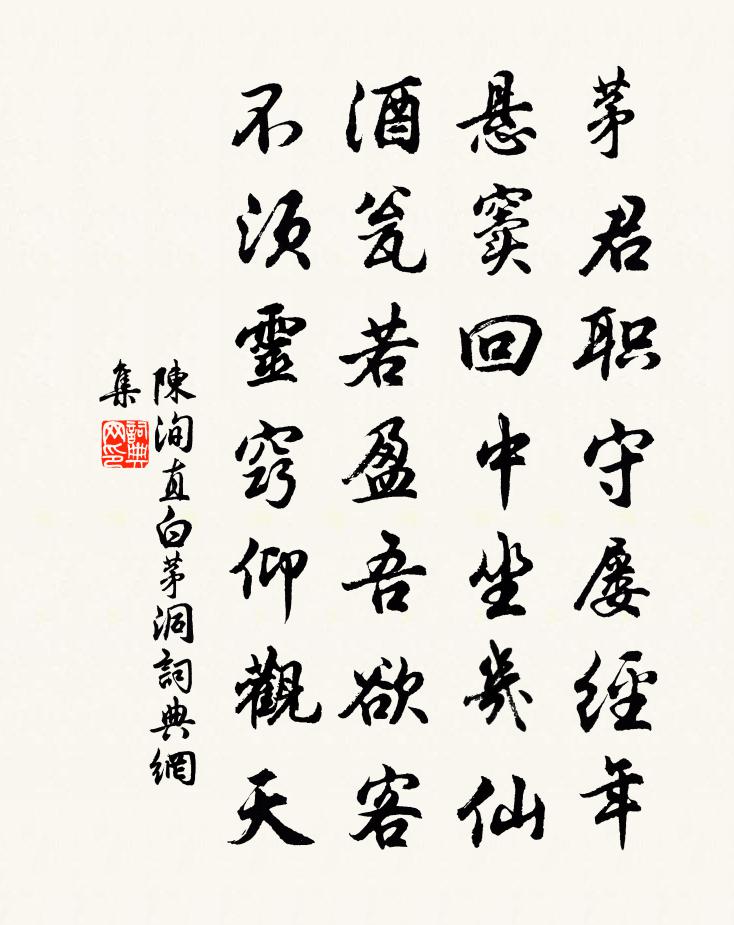 茅君职守屡經年
悬窦回中坐几仙
酒瓮若盈吾欲客
不须靈窍仰觀天
陳洵直白茅洞詞典網
集
詞典
网印